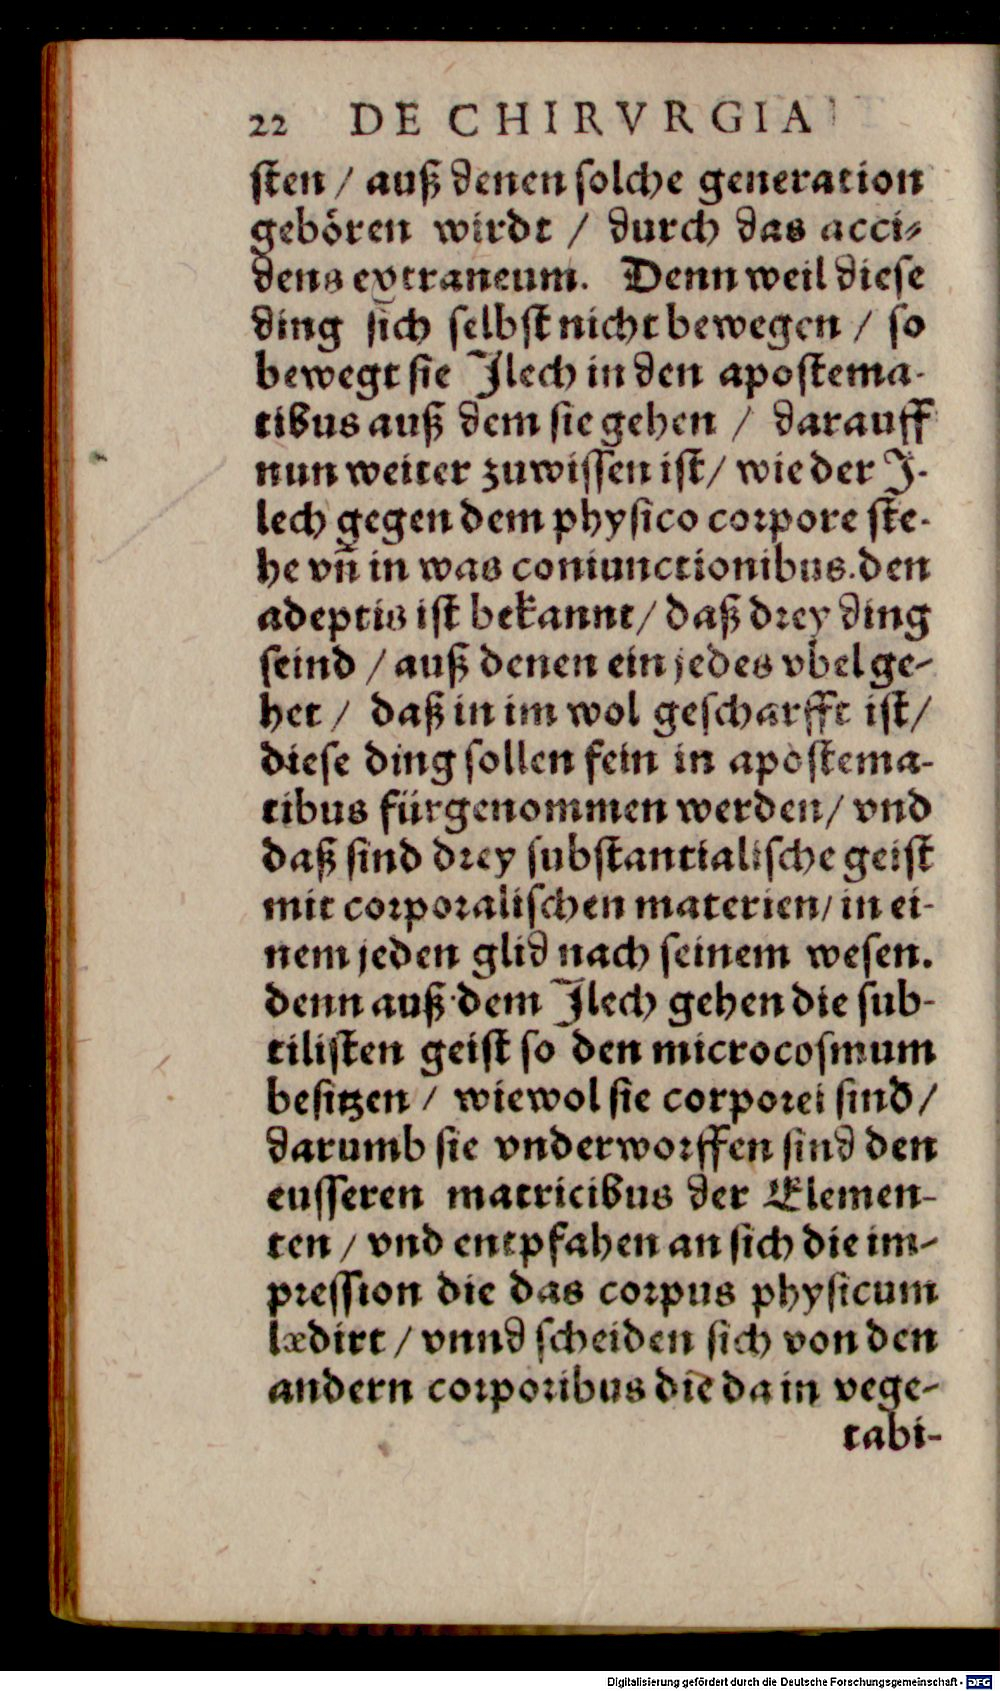 22 DE CHIRVRGIA
sten / auß denen solche generation
gebören wirdt / durch das acci-
dens extraneum. Denn weil diese
ding sich selbst nicht bewegen / so
bewegt sie Jlech in den apostema-
tibus auß dem sie gehen / darauff
nun weiter zuwissen ist / wie der J-
lech gegen dem physico corpore ste-
he vn̄ in was coniunctionibus. den
adeptis ist bekannt / daß drey ding
seind / auß denen ein jedes vbel ge-
het / daß in im wol gescharfft ist /
diese ding sollen fein in apostema-
tibus fürgenommen werden / vnd
daß sind drey substantialische geist
mit corporalischen materien / in ei-
nem jeden glid nach seinem wesen.
denn auß dem Jlech gehen die sub-
tilisten geist so den microcosmum
besitzen / wiewol sie corporei sind /
darumb sie vnderworffen sind den
eusseren matricibus der Elemen-
ten / vnd entpfahen an sich die im-
pression die das corpus physicum
lædirt / vnnd scheiden sich von den
andern corporibus die da in vege-
tabi-
Digitalisierung gefördert durch die Deutsche Forschungsgemeinschaft - DFG